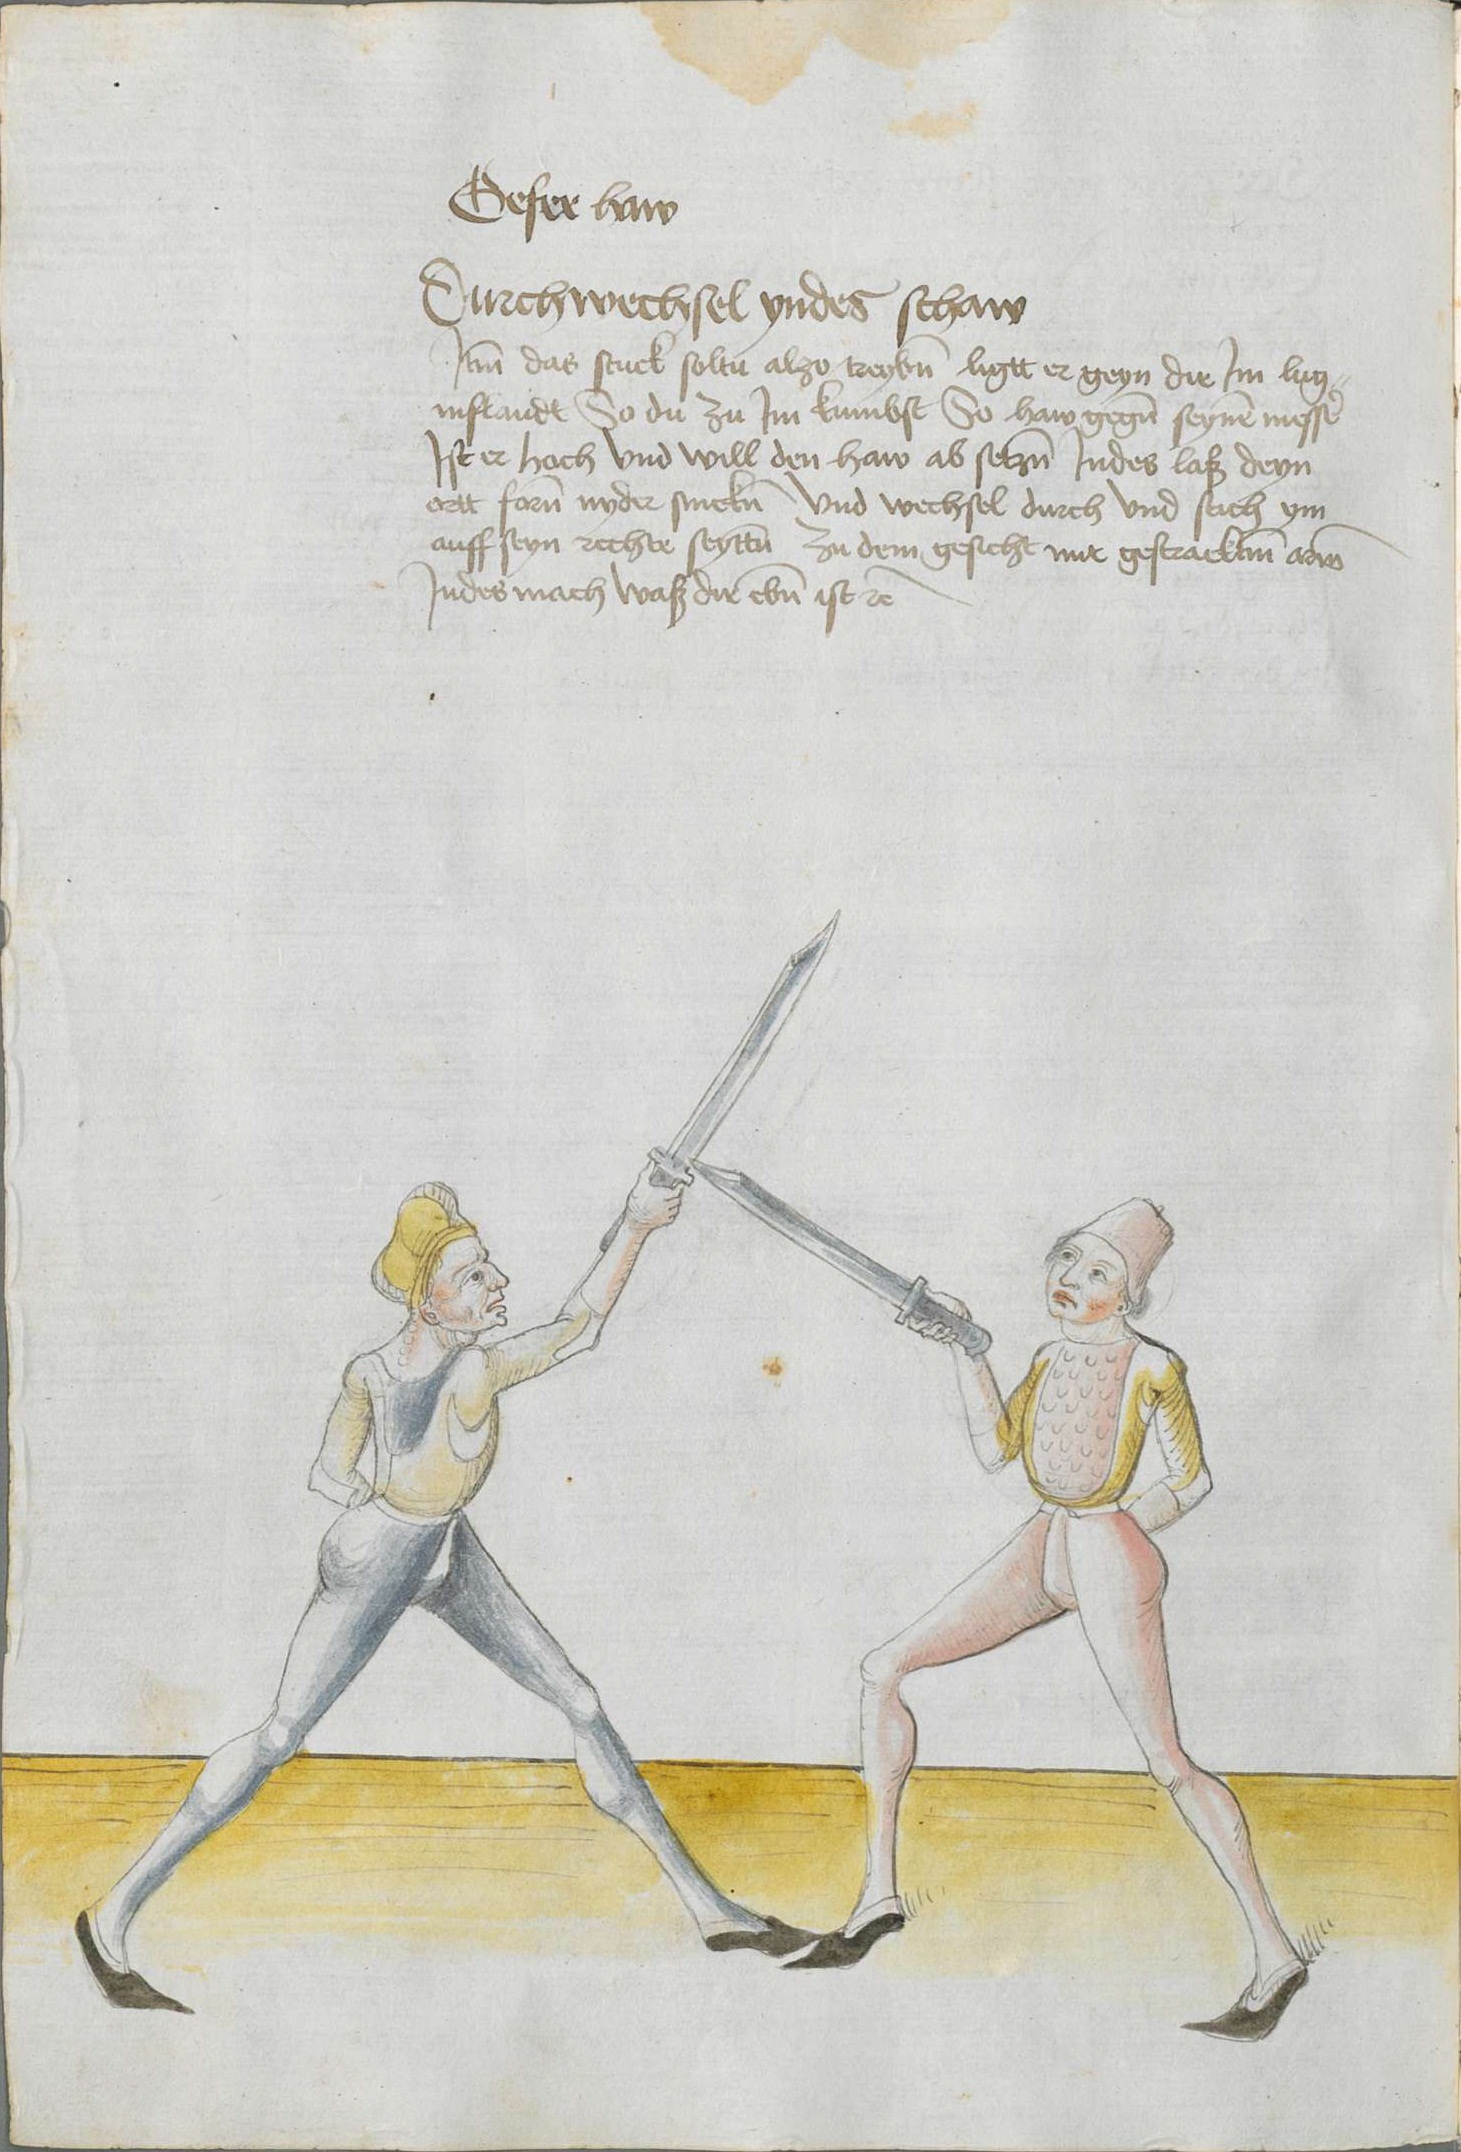 Geser haw
Durchwechsel yndes schaw
Itm̄ das stuck soltu alzo treybn̄ ligtt er geyn dir Im lug⸗
inslandt So du zu Im kumbst So haw gegn̄ seynē messer
Ist er hoch vnd will den haw ab setzn̄ Indes laß deyn
ortt forn̄ nyder sinckn̄ Vnd wechsel durch vnd stich ym
auff seyn rechte seyttn̄ zu dem gesicht mit gestracktm̄ arm
Indes mach waß dir ebn̄ ist rc̄